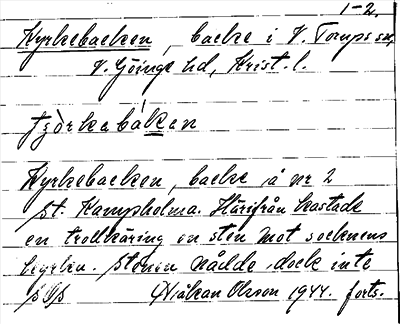 1-2.
Kyrkebacken, backe i V. Torups sn,
V. Göinge hd, Krist. l.
tjörkabákan
Kyrkebacken, backe å nr 2
St. Kampholma. Härifrån kastade
en trollkäring en sten mot socknens
kyrka. Stenen nådde dock inte
Håkan Olsson 1944. forts.